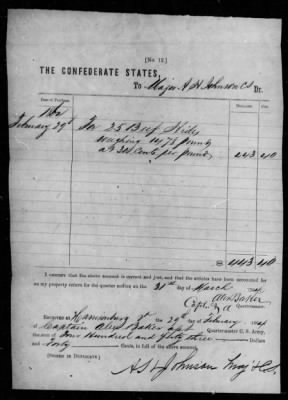 [No. 12.]
THE CONFEDERATE STATES,
To Major A H Johnson CS Dr.
Date of Purchase. DOLLARS. CTS.
February 29th For 25 Beef Hides
weighing 1478 pounds
at 30 cents per pound 443 40
$ 443.40
I CERTIFY that the above account is correct and just; and that the articles have been accounted for
on my property return for the quarter ending on the 31st day of March
Alex Baker
Capt. & A Quartermaster.
RECEIVED at the 29th of February
of Captain Alex Baker Quartermaster C. S. Army,
the sum of Four Hundred and forty three dollars
and Forty Cents, in full of the above account.
[SIGNED IN DUPLICATE.]
A H Johnson Maj & CS